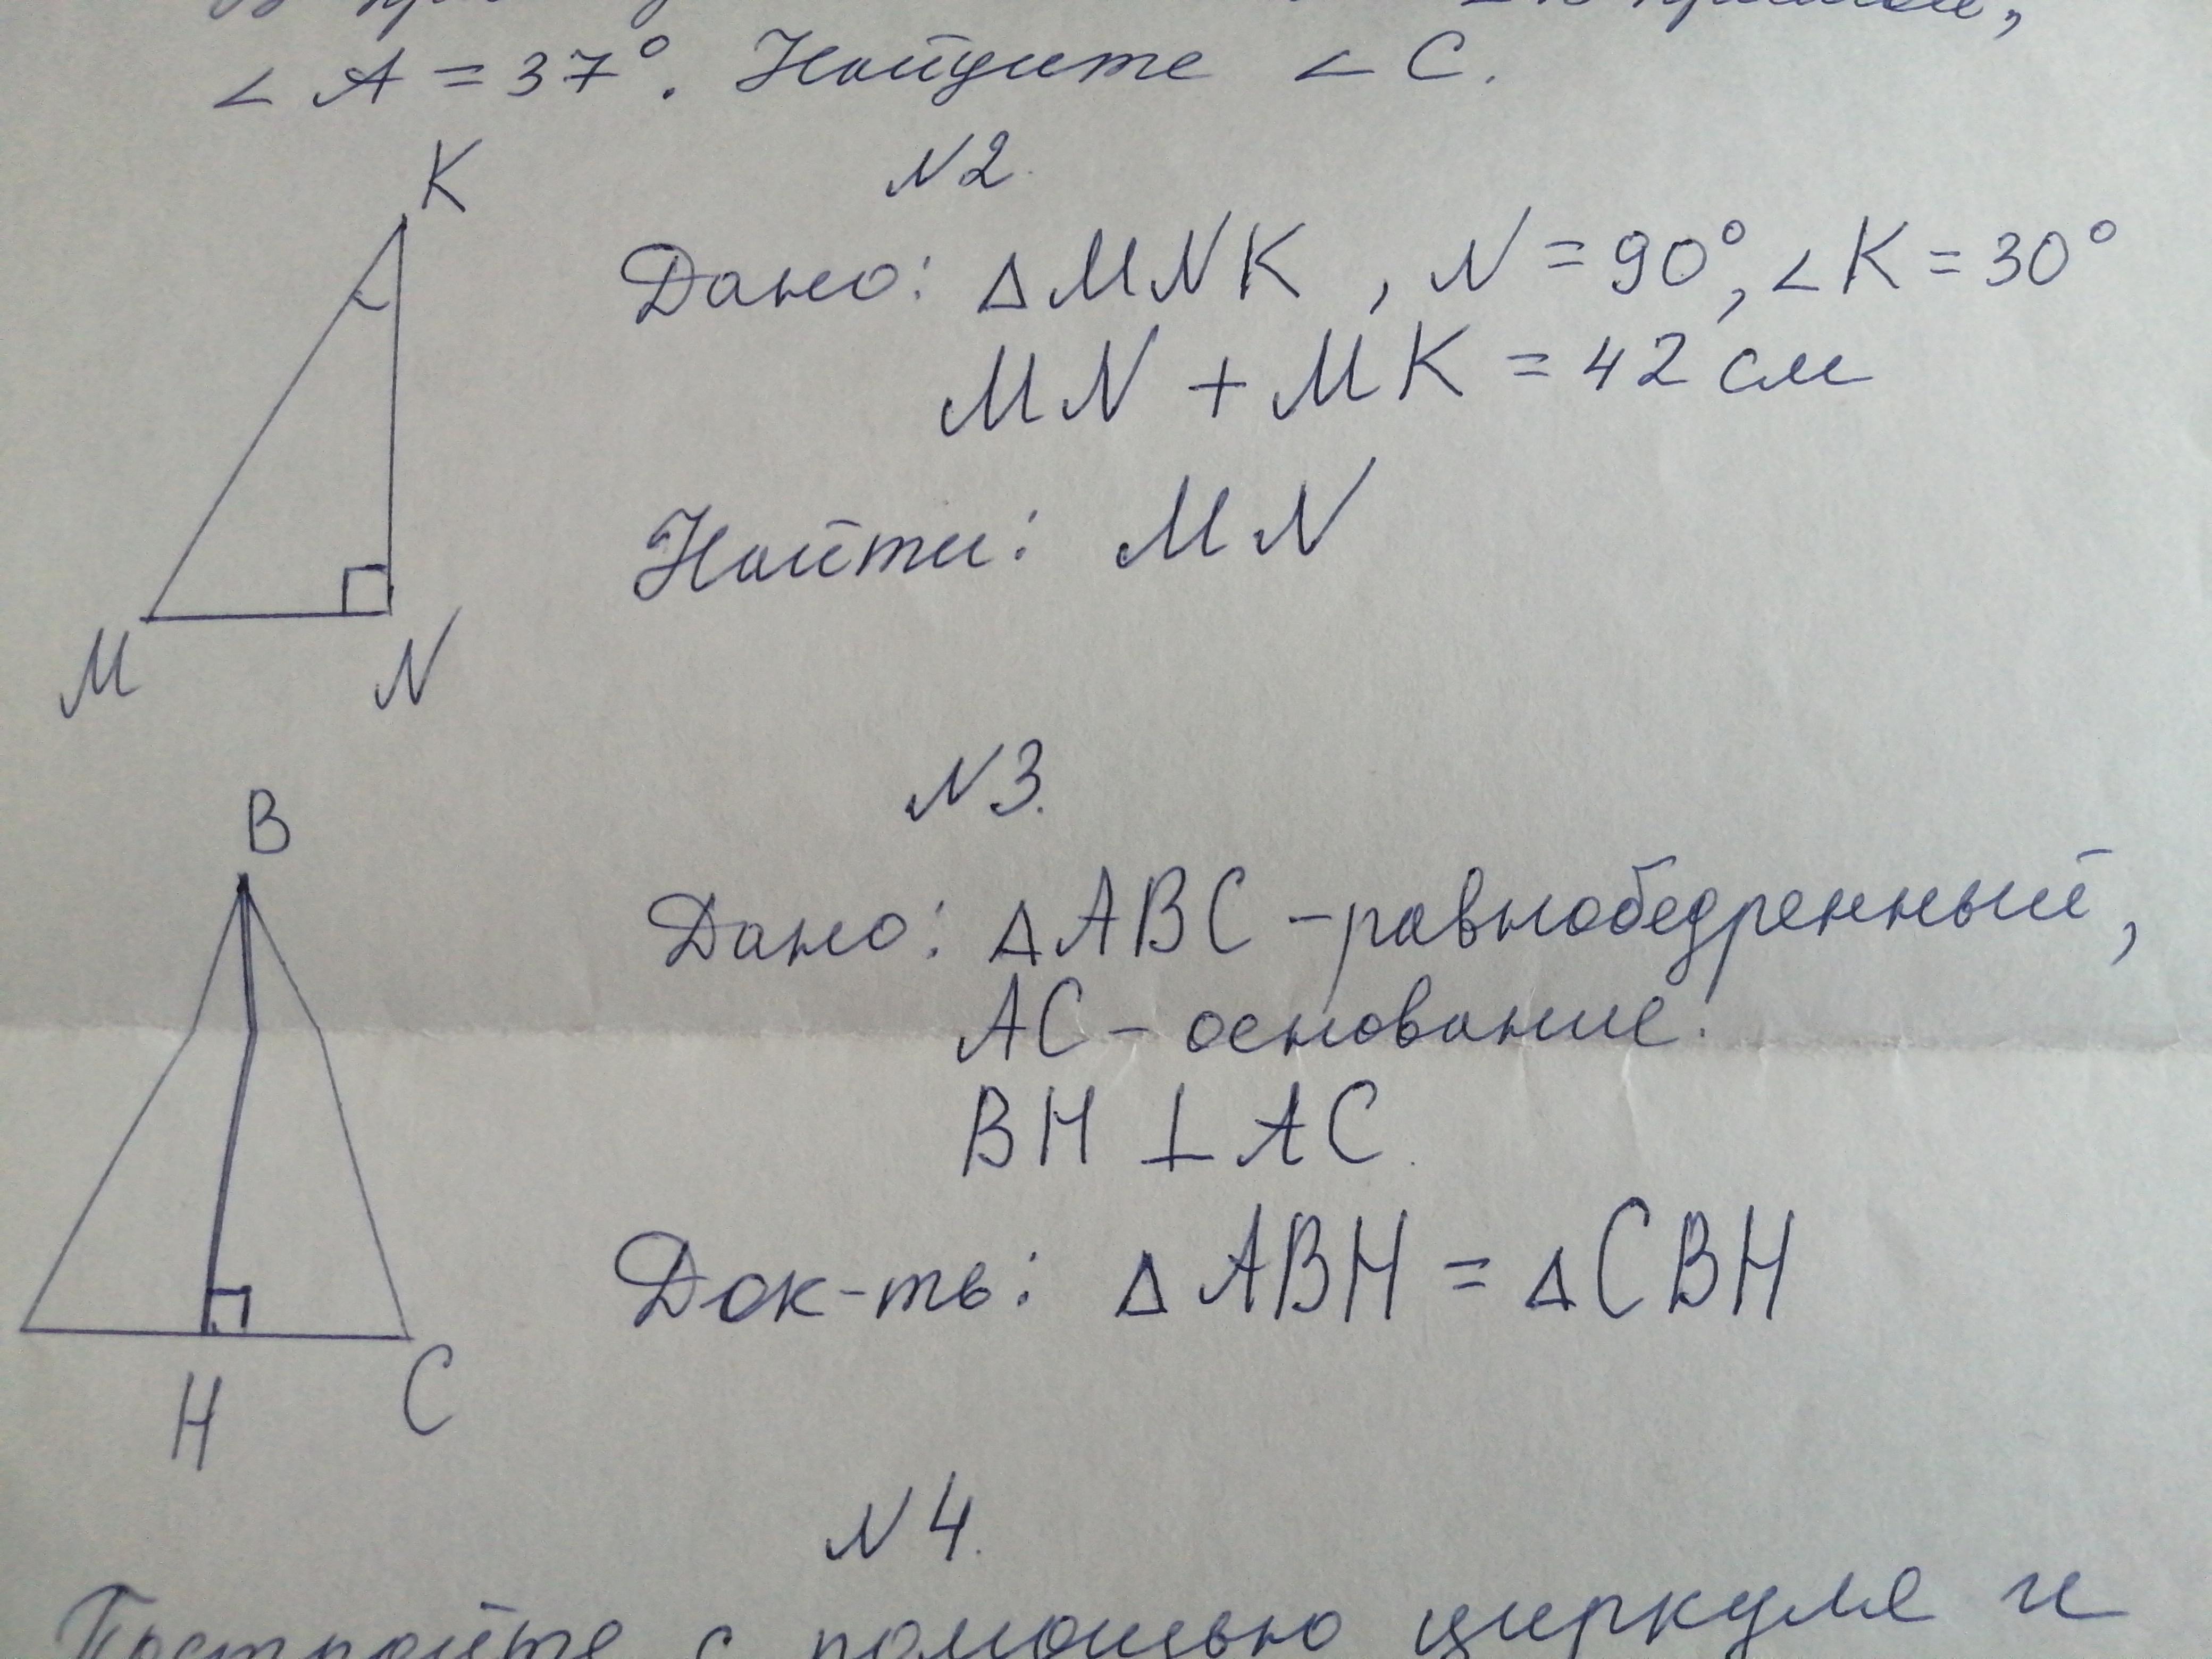 ∠A = 37°. Найдите ∠C.
N2.
K
Дано: ΔMNK, N = 90°, ∠K = 30°
MN + MK = 42 см
Найти: MN
M N
N3.
B
Дано: ΔABC - равнобедренный,
AC - основание.
BH ⊥ AC.
Док-ть: ΔABH = ΔCBH
H C
N4.
Постройте с помощью циркуля и